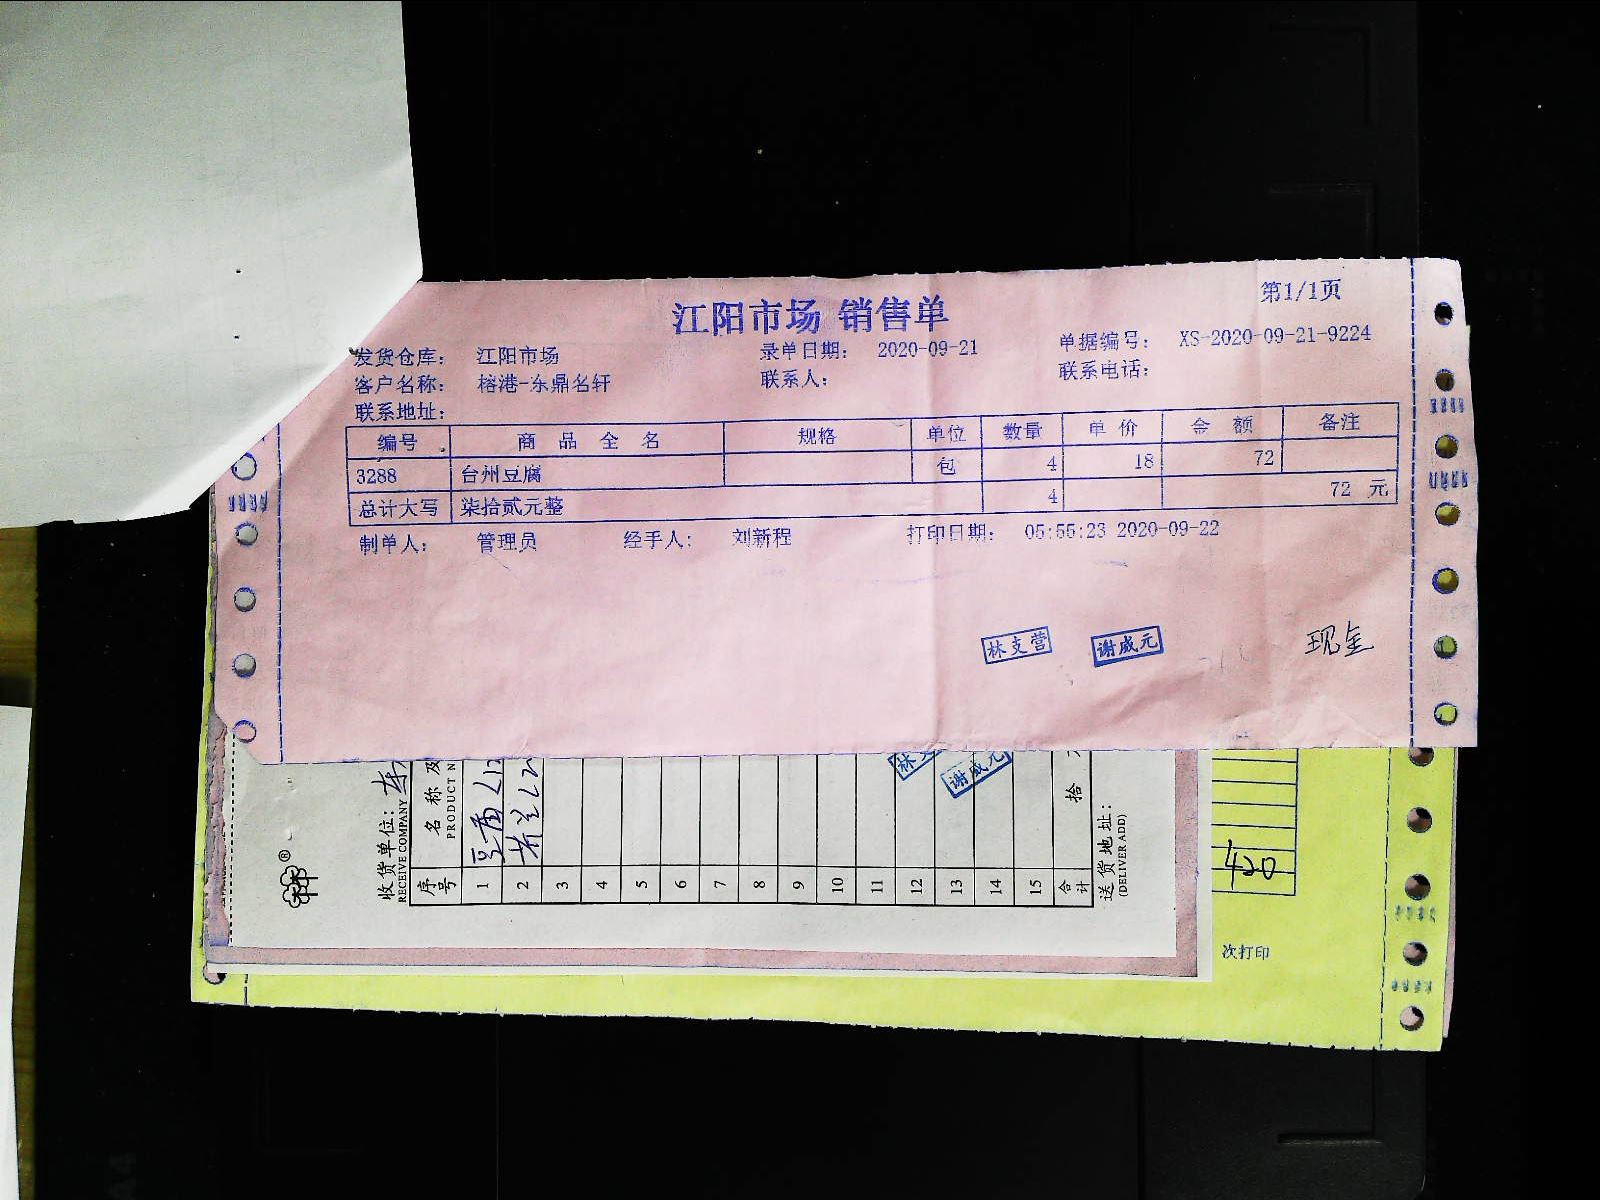 江阳市场 销售单
第1/1页
发货仓库： 江阳市场 录单日期： 2020-09-21 单据编号： XS-2020-09-21-9224
客户名称： 榕港-东鼎名轩 联系人： 联系电话：
联系地址：
编号 商品全名 规格 单位 数量 单价 金额 备注
3288 台州豆腐 包 4 18 72
总计大写 柒拾贰元整 4 72 元
制单人： 管理员 经手人： 刘新程 打印日期： 05:55:23 2020-09-22
林支营 谢威元 现金
收货单位：
RECEIVE COMPANY
序号 名称及
PRODUCT N
1
2
3
4
5
6
7
8
9
10
11
12
13
14
15
合计 拾
送货地址：
(DELIVER ADD)
谢威元
次打印